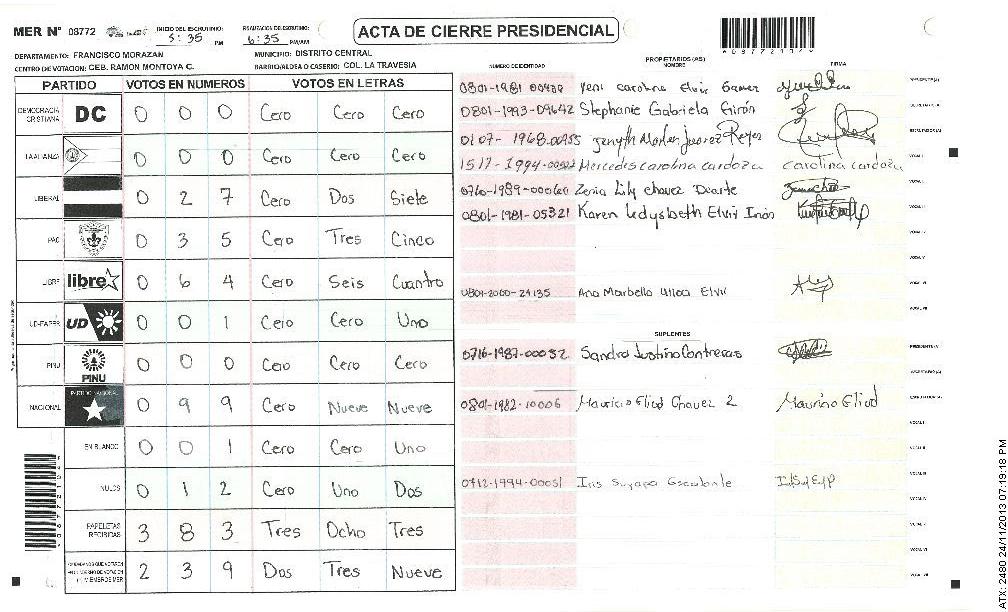 MER Nº 08772 INICIO DEL ESCRUTINIO: 5:35 PM FINALIZACION DE ESCRUTINIO: 6:35 PM/AM ACTA DE CIERRE PRESIDENCIAL
DEPARTAMENTO: FRANCISCO MORAZAN MUNICIPIO: DISTRITO CENTRAL
CENTRO DE VOTACION: CEB. RAMON MONTOYA C. BARRIO/ALDEA O CASERIO: COL. LA TRAVESIA
PARTIDO VOTOS EN NUMEROS VOTOS EN LETRAS
DEMOCRACIA CRISTIANA DC 0 0 0 Cero Cero Cero
LA ALIANZA 0 0 0 Cero Cero Cero
LIBERAL 0 2 7 Cero Dos Siete
PAC 0 3 5 Cero Tres Cinco
LIBRE libre 0 6 4 Cero Seis Cuantro
UD-FAPER UD 0 0 1 Cero Cero Uno
PINU PINU 0 0 0 Cero Cero Cero
NACIONAL PARTIDO NACIONAL 0 9 9 Cero Nueve Nueve
EN BLANCO 0 0 1 Cero Cero Uno
NULOS 0 1 2 Cero Uno Dos
PAPELETAS RECIBIDAS 3 8 3 Tres Ocho Tres
2 3 9 Dos Tres Nueve
NUMERO DE IDENTIDAD PROPIETARIOS (AS) NOMBRE FIRMA
0801-1981 Yeni Caroline Elvir
0801-1993-09642 Stephanie Gabriela Girón
0107-1968-00955
1517-1994-00522 Mercedes carolina cardoza carolina cardoza
0760-1989-00060 Zenia Lily chavez Duarte
0801-1981-05321 Karen Ledysbeth Elvir
0801-2000-24135 Ana Marbella Ulloa Elvir
SUPLENTES
0716-1987-00032 Sandra Justino Contreras
0801-1982-10006 Mauricio Eliud Chavez Mauricio Eliud
0712-1994-00051 Iris Suyapa Escalante
ATX: 2480 24/11/2013 07:19:18 PM